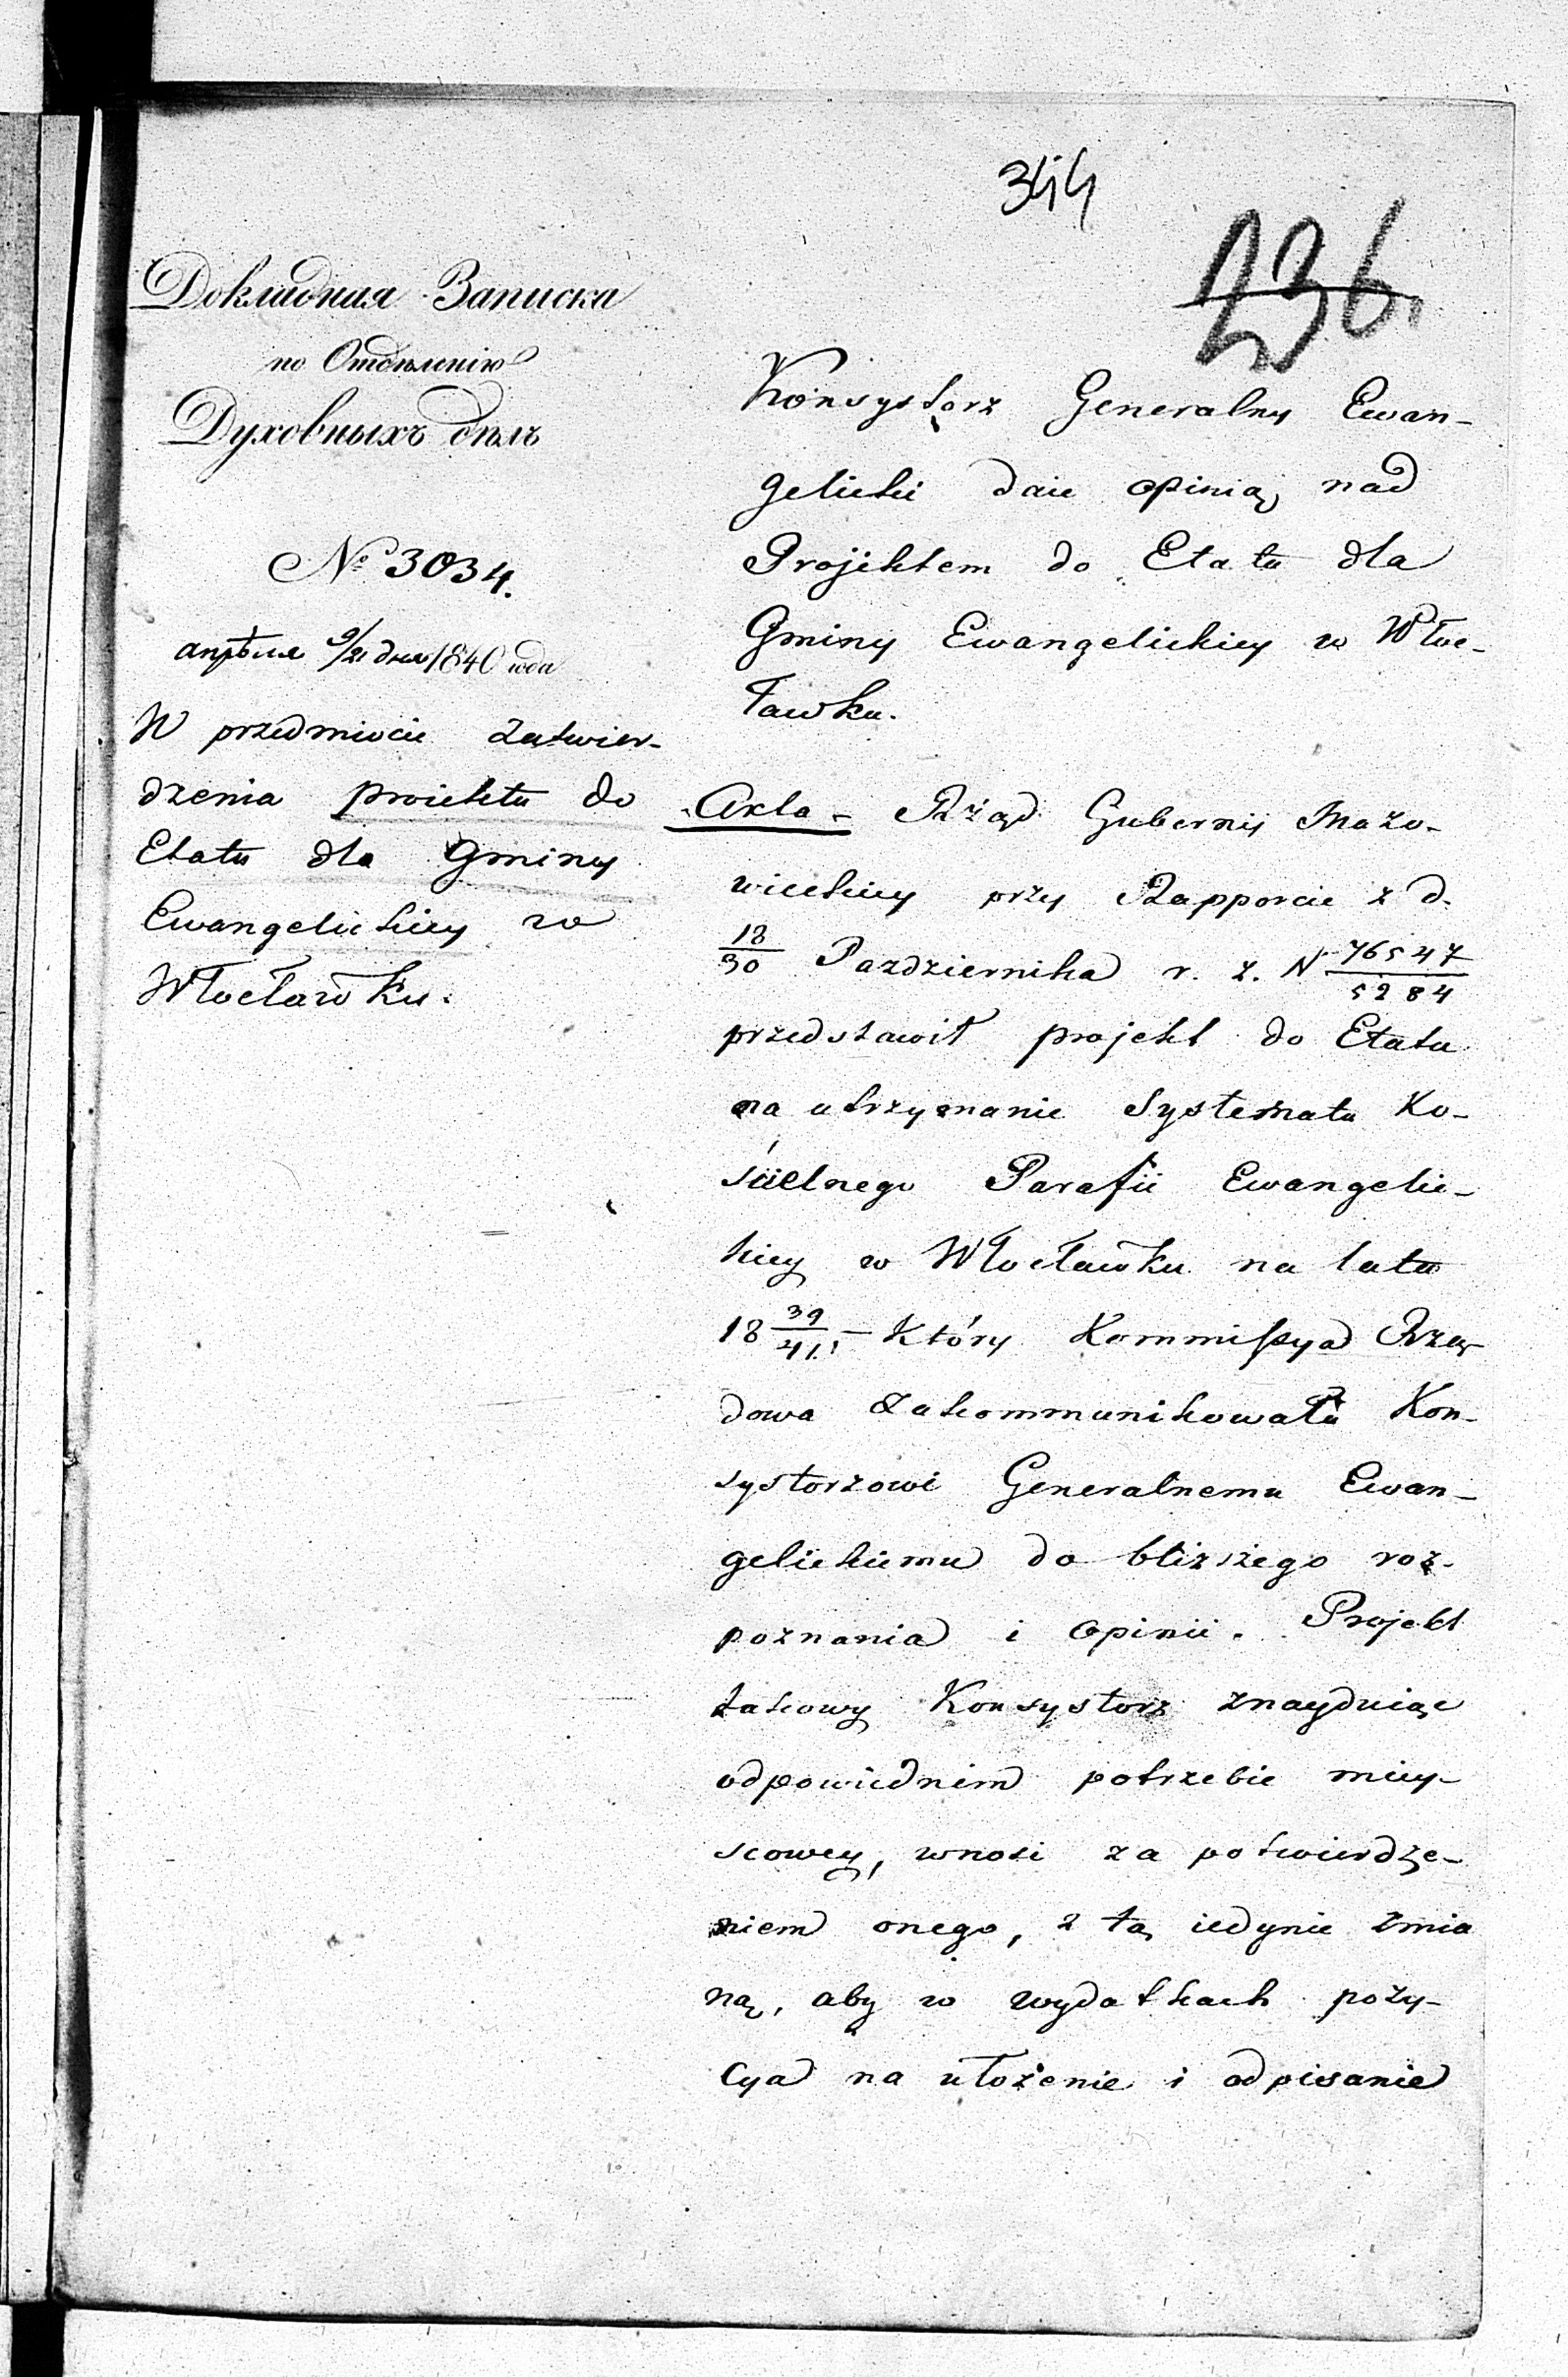 344
236.
Докладная Записка
по Отдѣленію
Духовныхъ дѣлъ
№ 3034.
апрѣля 9/21 дня 1840 года
W przedmiocie zatwier-
dzenia proiektu do
Etatu dla Gminy
Ewangelickiey w
Włocławku.
Konsystorz Generalny Ewan-
gelicki daie opinią nad
Projektem do Etatu dla
Gminy Ewangelickiey w Włoc-
ławku.
Akta - Rząd Gubernij Mazo-
wieckiey przy Rapporcie z d.
18/30 Pazdziernika r. z. N 76547/5284
przedstawił projekt do Etatu
na utrzymanie Systematu Ko-
ścielnego Parafii Ewangelic-
kiey w Włocławku na lata
18 39/41. – który Kommissya Rzą-
dowa zakommunikowała Kon-
systorzowi Generalnemu Ewan-
gelickiemu do bliższego roz-
poznania i opinii. Projekt
takowy Konsystorz znayduiąc
odpowiednim potrzebie miey-
scowey, wnosi za potwierdze-
niem onego, z tą iedynie zmia
ną, aby w wydatkach pozy-
cya na ułożenie i odpisanie